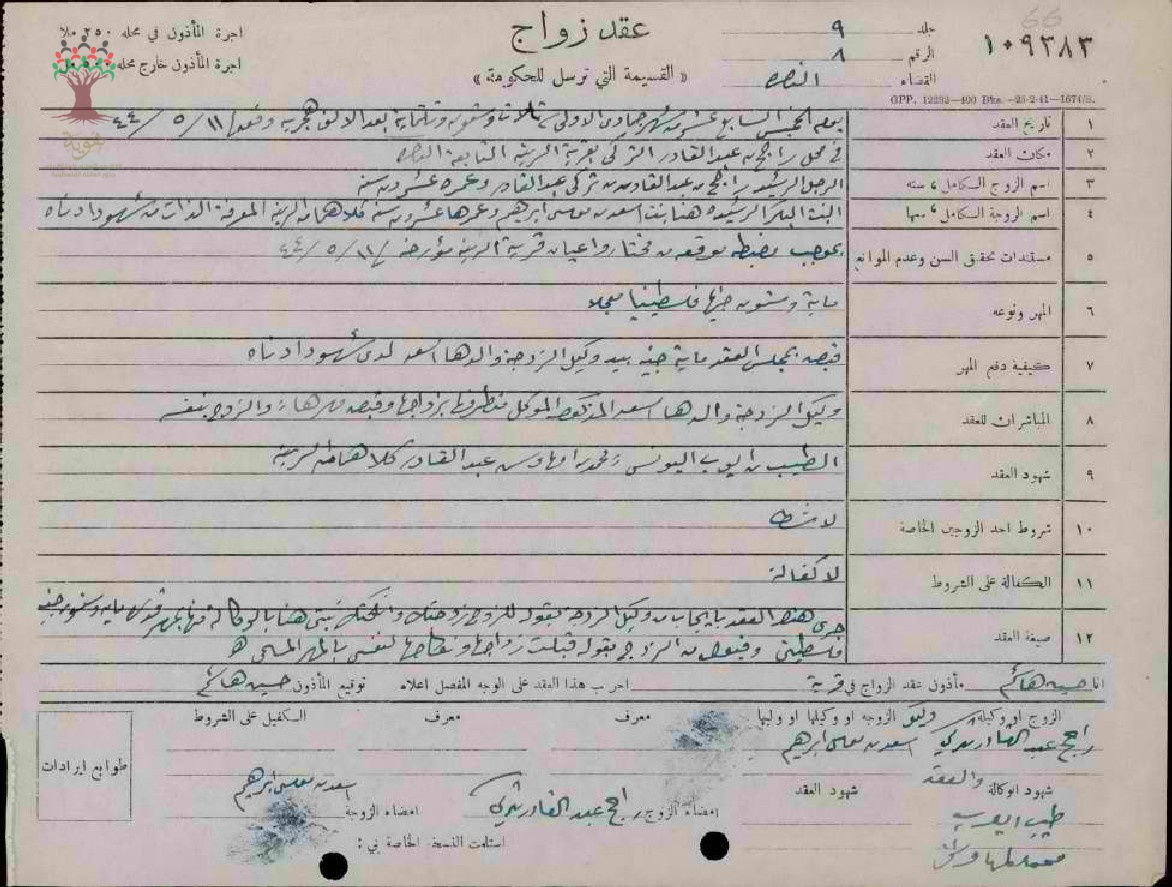 66
١٠٩٣٨٣
جلد ٩
الرقم ٨
القضاء الناصره
GPP. 12232—400 Dbs.—25-2-41—1674/S.
عقد زواج
« القسيمة التي ترسل للحكومة »
اجرة المأذون في محله ٢٥٠ ملا
اجرة المأذون خارج محله
١ تاريخ العقد يوم الخميس السابع عشر من شهر جمادى الاولى سنة ثلاث وستون وثلثماية بعد الالف هجريه وفق ١١ / ٥ / ٤٤
٢ مكان العقد في محل راجح بن عبد القادر التركي بقرية الرينه التابعة الناصره
٣ اسم الزوج الكامل وسنه الرجل الرشيد راجح بن عبد القادر بن تركي عبد القادر وعمره عشرون سنة
٤ اسم الزوجة الكامل وسنها البنت البكر الرشيده هنا بنت اسعد بن موسى ابرهيم وعمرها عشرون سنة كلاهما من الرينه المعرفة الذات من شهود ادناه
٥ مستندات تحقق السن وعدم الموانع بموجب مضبطه موقعه من مختار واعيان قرية الرينه مؤرخة ١١ / ٥ / ٤٤
٦ المهر ونوعه ماية وستون جنيها فلسطينيا معجلا
٧ كيفية دفع المهر قبض بمجلس العقد ماية جنيه بيد وكيل الزوجة والدها اسعد لدى شهود ادناه
٨ المباشران للعقد وكيل الزوجة والدها اسعد المذكور الموكل من طرفها بزواجها وقبض مهرها والزوج بنفسه
٩ شهود العقد الطيب بن ايوب اليونس ومحمد بن عبد القادر كلاهما من الرينه
١٠ شروط احد الزوجين الخاصة لا شرط
١١ الكفالة على الشروط لا كفالة
١٢ صيغة العقد جرى هذا العقد بايجاب من وكيل الزوجه بقوله للزوج زوجتك وانكحتك بنتي هنا بالوكالة عنها بمهر قدره ماية وستون جنيه
فلسطيني وقبول من الزوج بقوله قبلت زواجها ونكاحها لنفسي بالمهر المسمى
انا حسين هاشم مأذون عقد الزواج في قرية اجريت هذا العقد على الوجه المفصل اعلاه توقيع المأذون حسين هاشم
الزوج او وكيله وكيل الزوجه او وكيلها او وليها معرف معرف الكفيل على الشروط
راجح عبد القادر تركي اسعد بن موسى ابرهيم
طوابع ايرادات
شهود الوكالة والعقد شهود العقد
طيب ايوب
امضاء الزوج راجح عبد القادر تركي امضاء الزوجة اسعد بن موسى ابرهيم
استلمت النسخة الخاصة بي :